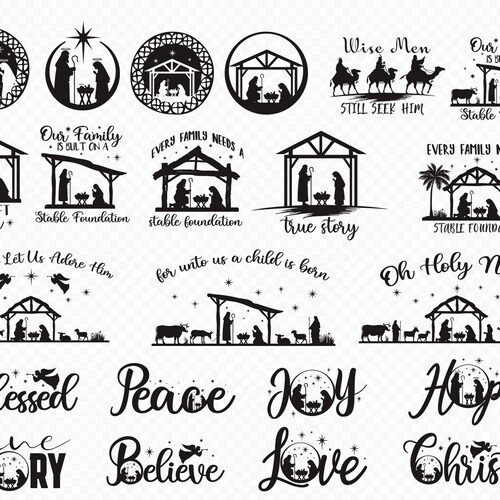 Wise Men
STILL SEEK HIM
Our
IS BUIL
Stable
Our Family
IS BUILT ON A
Stable Foundation
EVERY FAMILY NEEDS A
stable foundation
true story
EVERY FAMILY NE
STABLE FOUND
Let Us Adore Him
for unto us a child is born
Oh Holy N
lessed
Peace
JOY
Hop
ORY
Believe
Love
Chris